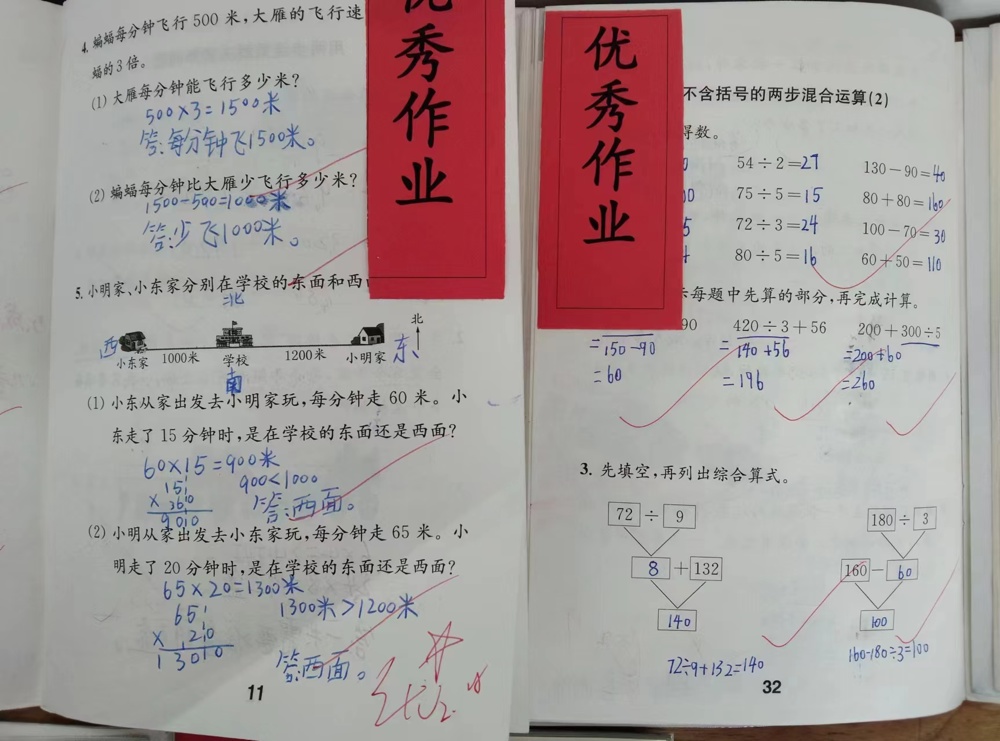 4. 蝙蝠每分钟飞行500米,大雁的飞行速
蝠的3倍。
(1) 大雁每分钟能飞行多少米?
500×3=1500米
答:每分钟飞1500米。
(2) 蝙蝠每分钟比大雁少飞行多少米?
1500-500=1000米
答:少飞1000米。
5. 小明家、小东家分别在学校的东面和西
北
北
西
东
小东家
1000米
学校
1200米
小明家
南
(1) 小东从家出发去小明家玩,每分钟走60米。小
东走了15分钟时,是在学校的东面还是西面?
60×15=900米
900<1000
答:西面。
(2) 小明从家出发去小东家玩,每分钟走65米。小
明走了20分钟时,是在学校的东面还是西面?
65×20=1300米
1300米>1200米
答:西面。
11
优秀作业
优秀作业
不含括号的两步混合运算(2)
得数。
54÷2=27
130-90=40
75÷5=15
80+80=160
72÷3=24
100-70=30
80÷5=16
60+50=110
每题中先算的部分,再完成计算。
90
420÷3+56
200+300÷5
=150-90
=140+56
=200+60
=60
=196
=260
3. 先填空,再列出综合算式。
72÷9
180÷3
8+132
160-60
140
100
72÷9+132=140
160-180÷3=100
32